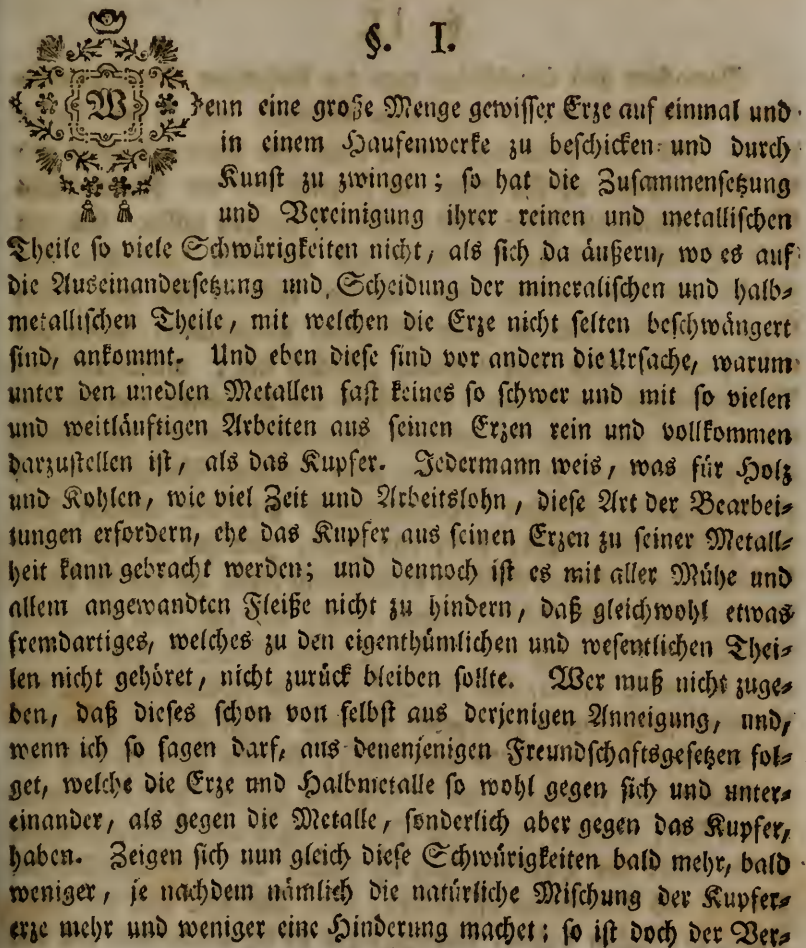 §. I.
Wenn eine große Menge gewisser Erze auf einmal und
in einem Haufenwerke zu beschicken und durch
Kunst zu zwingen; so hat die Zusammensetzung
und Vereinigung ihrer reinen und metallischen
Theile so viele Schwürigkeiten nicht, als sich da äußern, wo es auf
die Auseinandersetzung und Scheidung der mineralischen und halb-
metallischen Theile, mit welchen die Erze nicht selten beschwängert
sind, ankommt. Und eben diese sind vor andern die Ursache, warum
unter den uneblen Metallen fast keines so schwer und mit so vielen
und weitläuftigen Arbeiten aus seinen Erzen rein und vollkommen
darzustellen ist, als das Kupfer. Jedermann weis, was für Holz
und Kohlen, wie viel Zeit und Arbeitslohn, diese Art der Bearbei-
tungen erfordern, ehe das Kupfer aus seinen Erzen zu seiner Metall-
heit kann gebracht werden; und dennoch ist es mit aller Mühe und
allem angewandten Fleiße nicht zu hindern, daß gleichwohl etwas
fremdartiges, welches zu den eigenthümlichen und wesentlichen Thei-
len nicht gehöret, nicht zurück bleiben sollte. Wer muß nicht zuge-
ben, daß dieses schon von selbst aus derjenigen Anneigung, und,
wenn ich so sagen darf, aus denenjenigen Freundschaftsgesetzen fol-
get, welche die Erze und Halbmetalle so wohl gegen sich und unter-
einander, als gegen die Metalle, sonderlich aber gegen das Kupfer,
haben. Zeigen sich nun gleich diese Schwürigkeiten bald mehr, bald
weniger, je nachdem nämlich die natürliche Mischung der Kupfer-
erze mehr und weniger eine Hinderung machet; so ist doch der Ver-